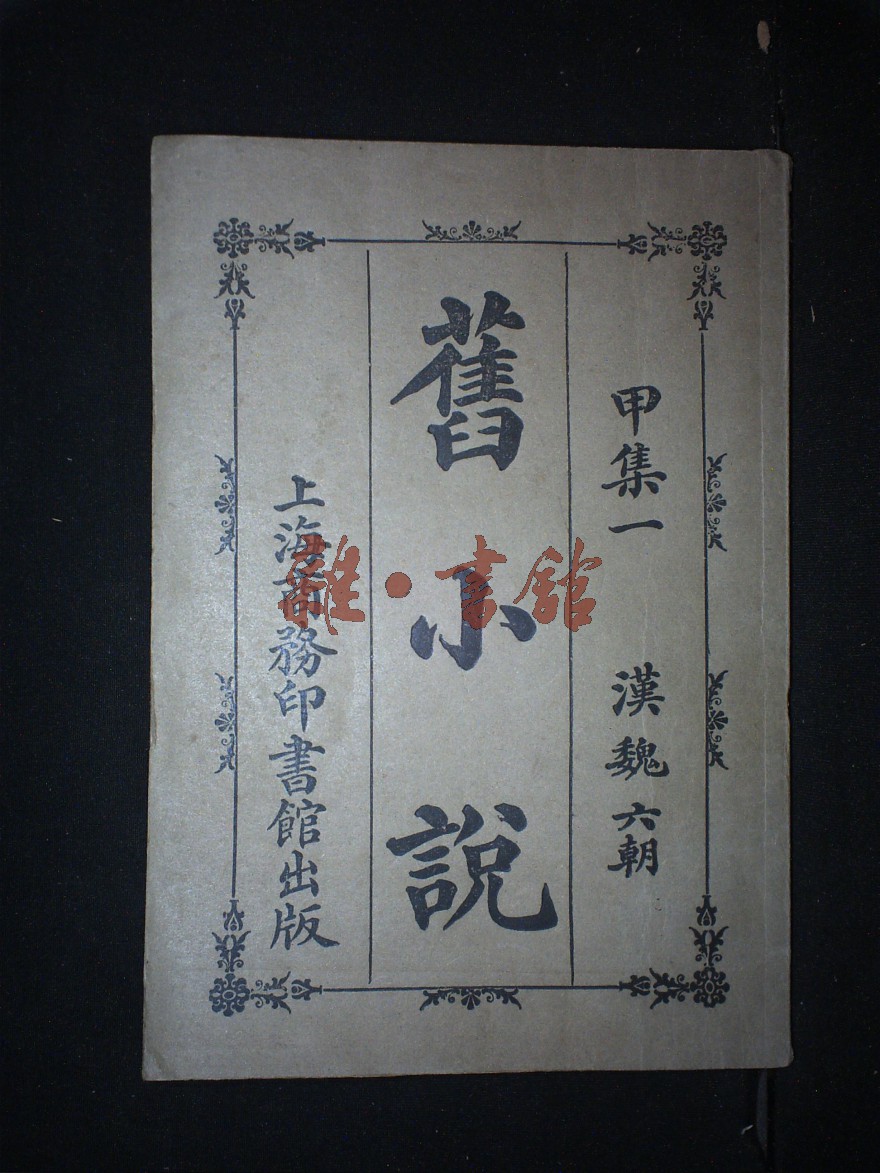 甲集一 漢魏六朝
舊小說
上海商務印書館出版
雒·書館